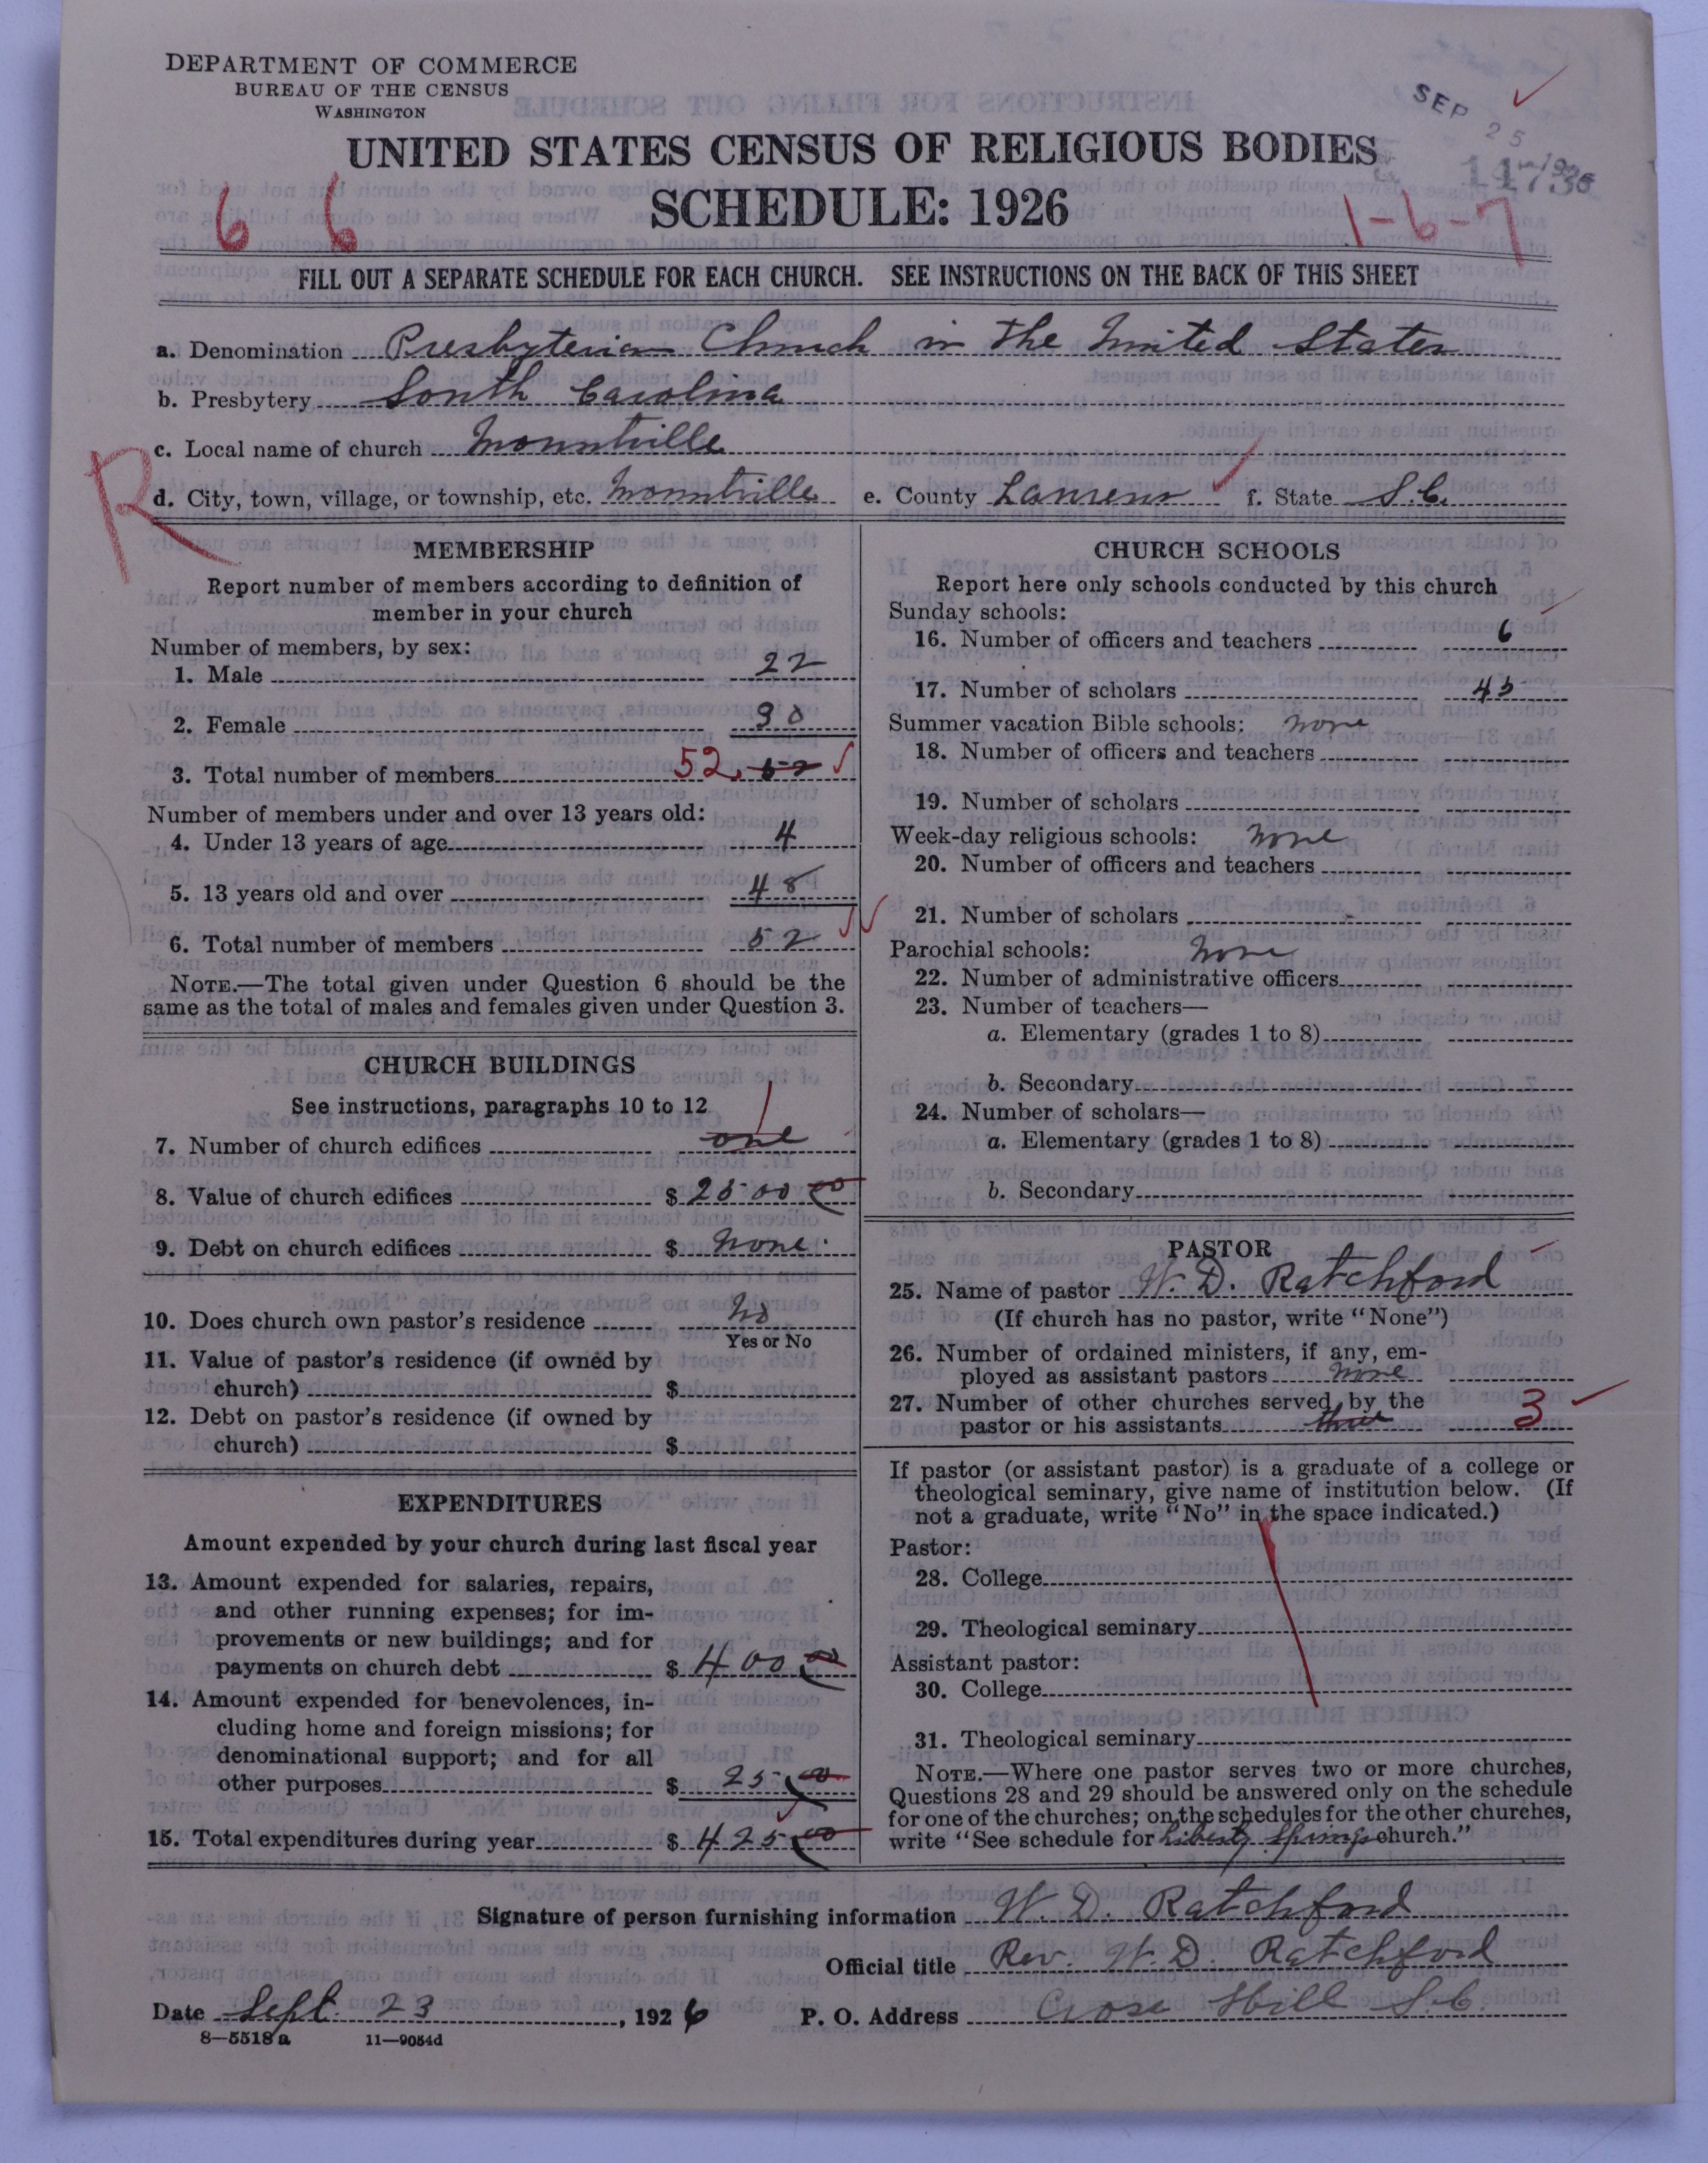 DEPARTMENT OF COMMERCE
BUREAU OF THE CENSUS
WASHINGTON
SEP 25
UNITED STATES CENSUS OF RELIGIOUS BODIES
SCHEDULE: 1926
6 6
1-6-7
FILL OUT A SEPARATE SCHEDULE FOR EACH CHURCH. SEE INSTRUCTIONS ON THE BACK OF THIS SHEET
a. Denomination Presbyterian Church in The United States
b. Presbytery South Carolina
c. Local name of church Mountville
R
d. City, town, village, or township, etc. Mountville e. County Laurens f. State S.C.
MEMBERSHIP
Report number of members according to definition of
member in your church
Number of members, by sex:
1. Male 22
2. Female 30
3. Total number of members 52. 52
Number of members under and over 13 years old:
4. Under 13 years of age 4
5. 13 years old and over 48
6. Total number of members 52
NOTE.—The total given under Question 6 should be the
same as the total of males and females given under Question 3.
CHURCH BUILDINGS
See instructions, paragraphs 10 to 12
1
7. Number of church edifices one
8. Value of church edifices $ 2500 00
9. Debt on church edifices $ None
10. Does church own pastor's residence No
Yes or No
11. Value of pastor's residence (if owned by
church) $
12. Debt on pastor's residence (if owned by
church) $
EXPENDITURES
Amount expended by your church during last fiscal year
13. Amount expended for salaries, repairs,
and other running expenses; for im-
provements or new buildings; and for
payments on church debt $ 400 00
14. Amount expended for benevolences, in-
cluding home and foreign missions; for
denominational support; and for all
other purposes $ 25 00
15. Total expenditures during year $ 425 00
CHURCH SCHOOLS
Report here only schools conducted by this church
Sunday schools:
16. Number of officers and teachers 6
17. Number of scholars 45
Summer vacation Bible schools: none
18. Number of officers and teachers
19. Number of scholars
Week-day religious schools: none
20. Number of officers and teachers
21. Number of scholars
Parochial schools: none
22. Number of administrative officers
23. Number of teachers—
a. Elementary (grades 1 to 8)
b. Secondary
24. Number of scholars—
a. Elementary (grades 1 to 8)
b. Secondary
PASTOR
25. Name of pastor W. D. Ratchford
(If church has no pastor, write "None")
26. Number of ordained ministers, if any, em-
ployed as assistant pastors none
27. Number of other churches served by the
pastor or his assistants three 3
If pastor (or assistant pastor) is a graduate of a college or
theological seminary, give name of institution below. (If
not a graduate, write "No" in the space indicated.)
Pastor:
28. College
29. Theological seminary
Assistant pastor:
30. College
31. Theological seminary
NOTE.—Where one pastor serves two or more churches,
Questions 28 and 29 should be answered only on the schedule
for one of the churches; on the schedules for the other churches,
write "See schedule for Liberty Springs church."
Signature of person furnishing information W. D. Ratchford
Official title Rev. W. D. Ratchford
Date Sept. 23, 1926 P. O. Address Cross Hill S.C.
8—5518 a 11—9054d